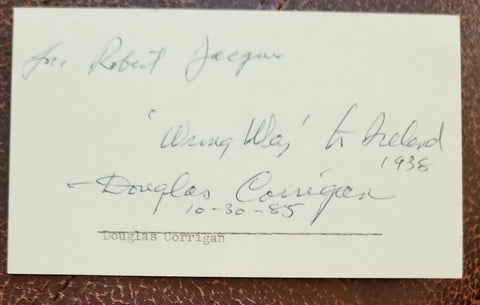 for Robert Jacques
'Wrong Way' to Ireland
1938
- Douglas Corrigan
10-30-85
Douglas Corrigan